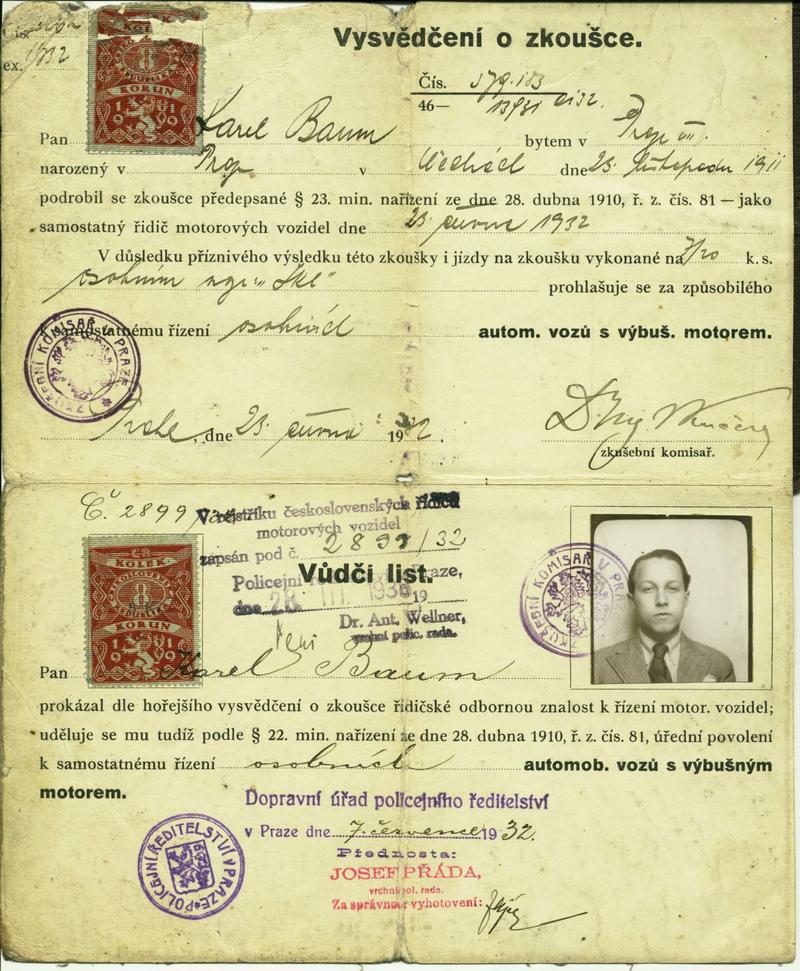 1932
8
KORUN
1919
Vysvědčení o zkoušce.
Čís.
46—
Pan Karel Baum bytem v
narozený v v dne 23. listopadu 1911
podrobil se zkoušce předepsané § 23. min. nařízení ze dne 28. dubna 1910, ř. z. čís. 81 — jako
samostatný řidič motorových vozidel dne 23. června 1932
V důsledku příznivého výsledku této zkoušky i jízdy na zkoušku vykonané na k. s.
osobním prohlašuje se za způsobilého
k samostatnému řízení osobních autom. vozů s výbuš. motorem.
ZKUŠEBNÍ KOMISAŘ V PRAZE
dne 23. června 1932.
zkušební komisař.
Č. 2899
V rejstříku československých řidičů
motorových vozidel
zapsán pod č. 2899/32
KOLEK
8
KORUN
1919
Vůdčí list.
Policejní Praze,
dne 28. III. 1938 19
Dr. Ant. Wellner,
vrchní polic. rada.
ZKUŠEBNÍ KOMISAŘ V PRAZE
Pan Karel Baum
prokázal dle hořejšího vysvědčení o zkoušce řidičské odbornou znalost k řízení motor. vozidel;
uděluje se mu tudíž podle § 22. min. nařízení ze dne 28. dubna 1910, ř. z. čís. 81, úřední povolení
k samostatnému řízení osobních automob. vozů s výbušným
motorem.
Dopravní úřad policejního ředitelství
v Praze dne 7. července 1932.
POLICEJNÍ ŘEDITELSTVÍ V PRAZE
Přednosta:
JOSEF PŘÁDA,
vrchní pol. rada.
Za správnost vyhotovení: